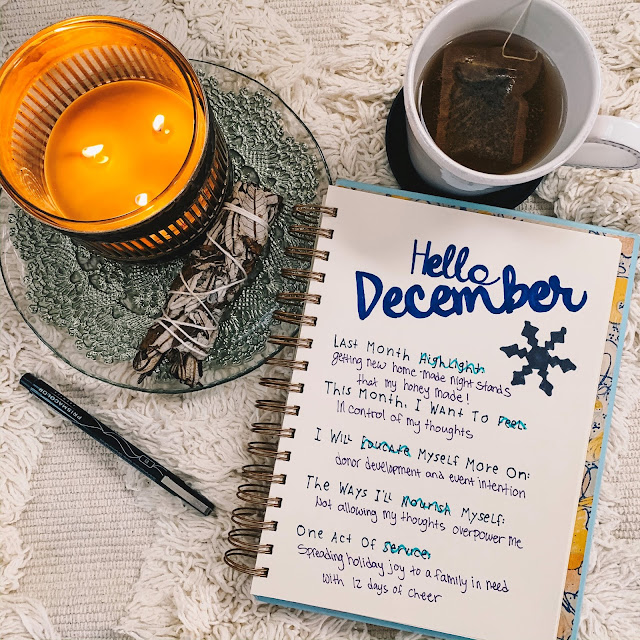 Hello
December
Last Month Highlight:
getting new home-made night stands
that my honey made!
This Month, I Want To Feel:
In control of my thoughts
I Will Educate Myself More On:
donor development and event intention
The Ways I'll Nourish Myself:
Not allowing my thoughts overpower me
One Act Of Service:
Spreading holiday joy to a family in need
with 12 days of cheer
PRISMACOLOR